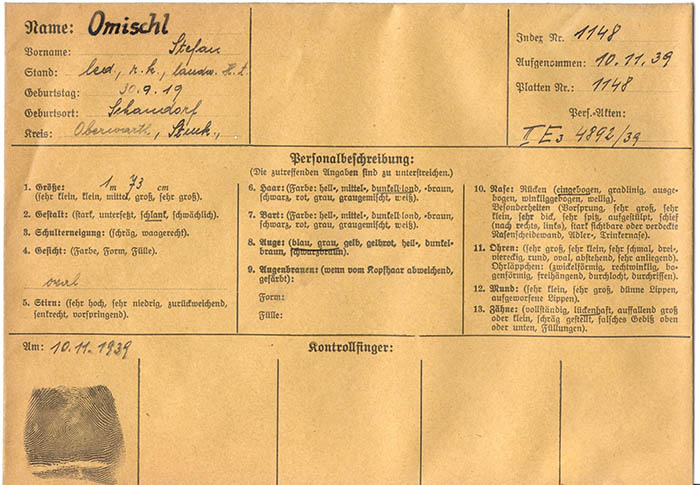 Name: Omischl
Vorname: Stefan
Stand: led., r. k., landw. H. A.
Geburtstag: 30.9.19
Geburtsort: Schandorf
Kreis: Oberwarth, Stmk.,
Index Nr. 1148
Aufgenommen: 10.11.39
Platten Nr.: 1148
Pers.-Akten:
II E3 4892/39
Personalbeschreibung:
(Die zutreffenden Angaben sind zu unterstreichen.)
1. Größe: 1 m 73 cm
(sehr klein, klein, mittel, groß, sehr groß).
2. Gestalt: (stark, untersetzt, schlank, schwächlich).
3. Schulterneigung: (schräg, waagerecht).
4. Gesicht: (Farbe, Form, Fülle).
oval
5. Stirn: (sehr hoch, sehr niedrig, zurückweichend,
senkrecht, vorspringend).
6. Haar: (Farbe: hell-, mittel-, dunkelblond, -braun,
schwarz, rot, grau, graugemischt, weiß).
7. Bart: (Farbe: hell-, mittel-, dunkelblond, -braun,
schwarz, rot, grau, graugemischt, weiß).
8. Auge: (blau, grau, gelb, gelbrot, hell-, dunkel-
braun, schwarzbraun).
9. Augenbrauen: (wenn vom Kopfhaar abweichend,
gefärbt):
Form:
Fülle:
10. Nase: Rücken (eingebogen, gradlinig, ausge-
bogen, winkliggebogen, wellig).
Besonderheiten (Vorsprung, sehr groß, sehr
klein, sehr dick, sehr spitz, aufgestülpt, schief
(nach rechts, links), stark sichtbare oder verdeckte
Nasenscheidewand, Adler-, Trinkernase).
11. Ohren: (sehr groß, sehr klein, sehr schmal, drei-,
viereckig, rund, oval, abstehend, sehr anliegend).
Ohrläppchen: (zwickelförmig, rechtwinklig, bo-
genförmig, freihängend, durchlocht, durchrissen).
12. Mund: (sehr klein, sehr groß, dünne Lippen,
aufgeworfene Lippen).
13. Zähne: (vollständig, lückenhaft, auffallend groß
oder klein, schräg gestellt, falsches Gebiß oben
oder unten, Füllungen).
Am: 10.11.1939
Kontrollfinger: